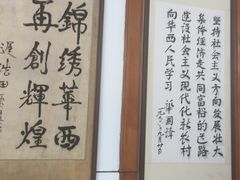 坚持社会主义方向发展壮大
集体经济走共同富裕的道路
建设社会主义现代化新农村
向华西人民学习
錦绣華西
再創輝煌